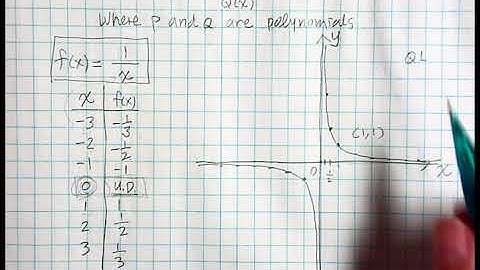 Q(x)
Where P and Q are polynomials
f(x) = 1/x
x f(x)
-3 -1/3
-2 -1/2
-1 -1
0 U.D.
1 1
2 1/2
3 1/3
y
Q1
(1,1)
0 1/2
x